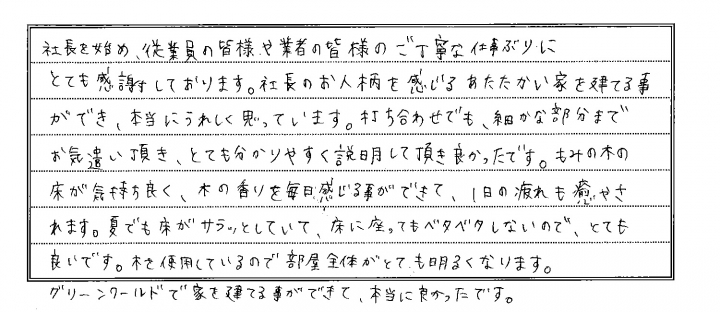 社長を始め、従業員の皆様や業者の皆様のご丁寧な仕事ぶりに
とても感謝しております。社長のお人柄を感じるあたたかい家を建てる事
ができ、本当にうれしく思っています。打ち合わせでも、細かな部分まで
お気遣い頂き、とても分かりやすく説明して頂き良かったです。もみの木の
床が気持ち良く、木の香りを毎日感じる事ができて、1日の疲れも癒やさ
れます。夏でも床がサラッとしていて、床に座ってもベタベタしないので、とても
良いです。木を使用しているので部屋全体がとても明るくなります。
グリーンワールドで家を建てる事ができて、本当に良かったです。